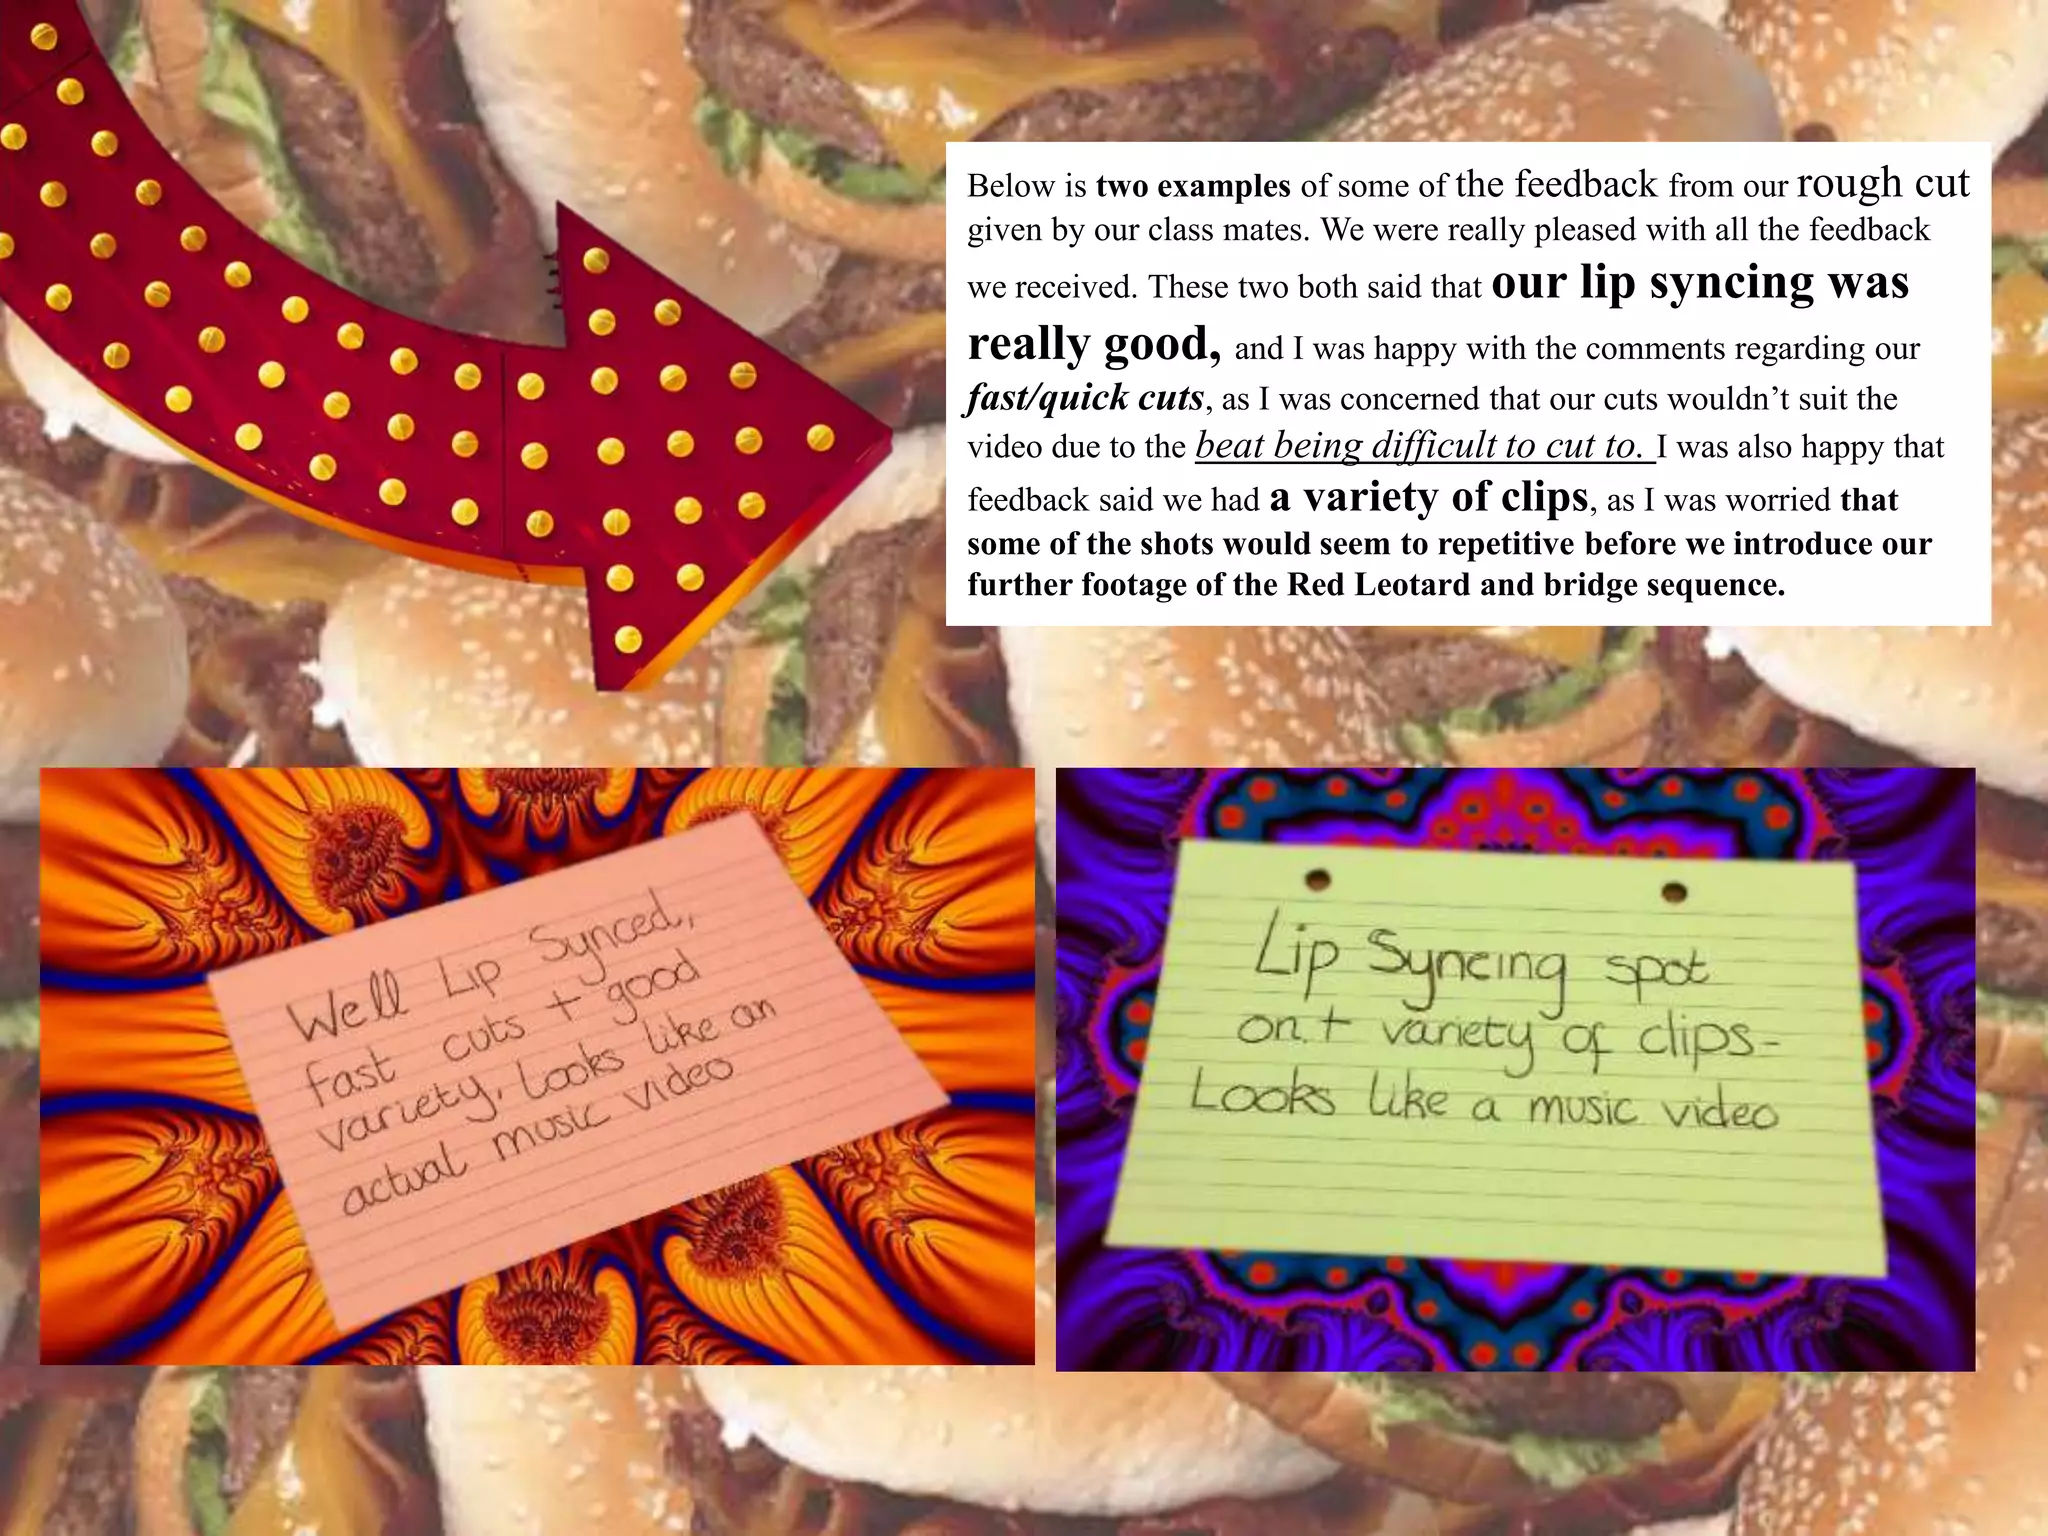 Below is two examples of some of the feedback from our rough cut
given by our class mates. We were really pleased with all the feedback
we received. These two both said that our lip syncing was
really good, and I was happy with the comments regarding our
fast/quick cuts, as I was concerned that our cuts wouldn’t suit the
video due to the beat being difficult to cut to. I was also happy that
feedback said we had a variety of clips, as I was worried that
some of the shots would seem to repetitive before we introduce our
further footage of the Red Leotard and bridge sequence.
Well Lip Synced,
fast cuts + good
variety, Looks like an
actual music video
Lip Syncing spot
on + variety of clips-
Looks like a music video